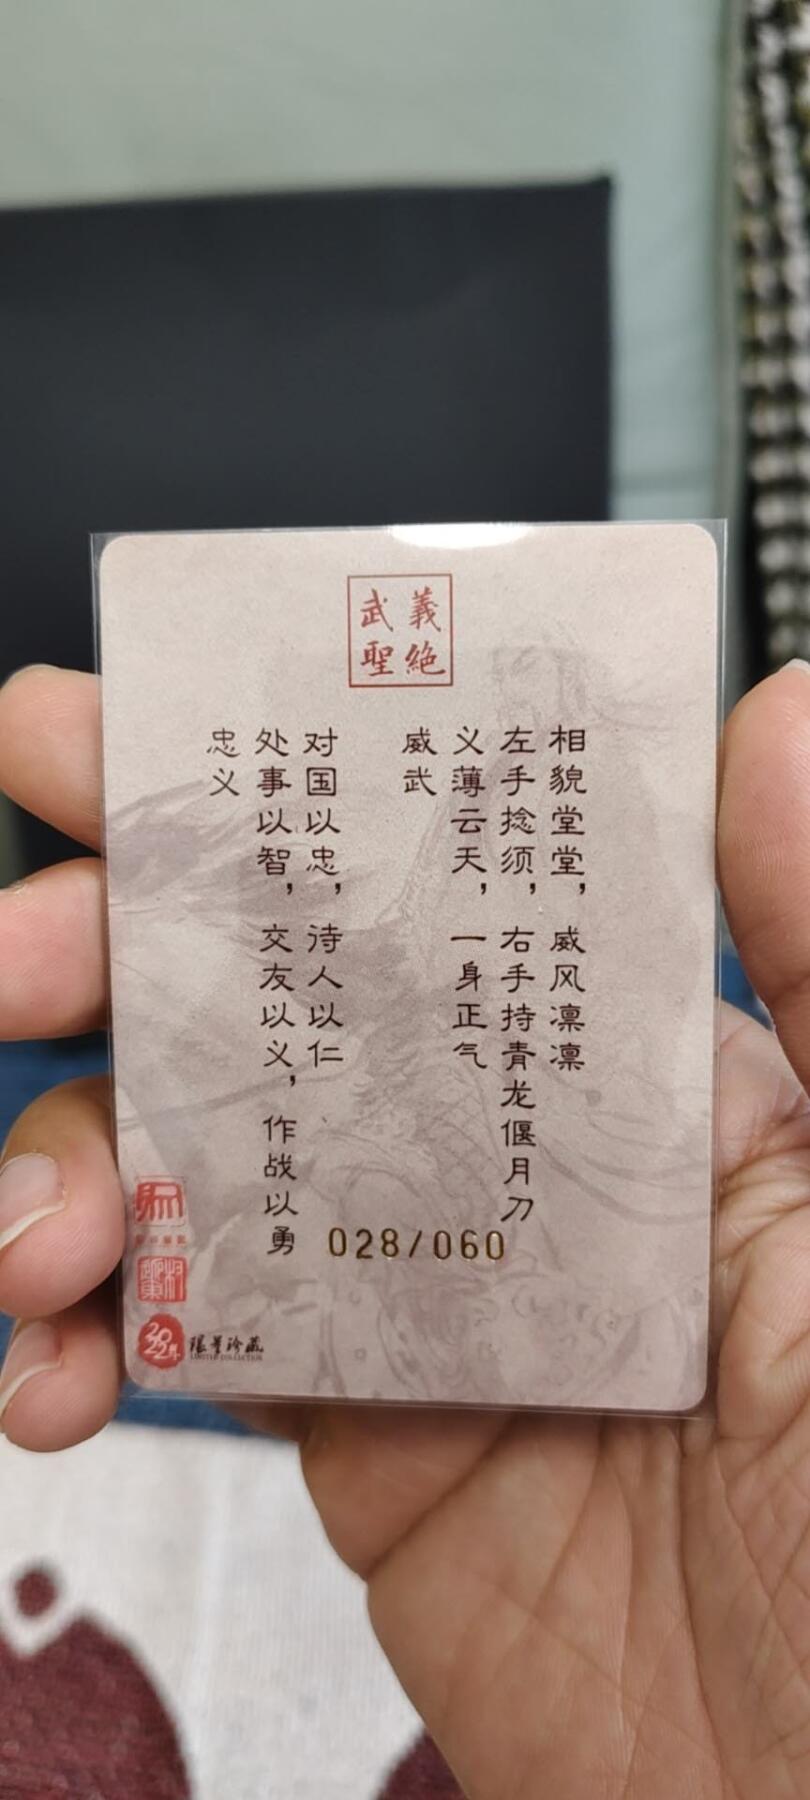 義絕
武聖
相貌堂堂，威风凛凛
左手捻须，右手持青龙偃月刀
义薄云天，一身正气
威武
对国以忠，待人以仁
处事以智，交友以义，作战以勇
忠义
028/060
限量珍藏
LIMITED COLLECTION